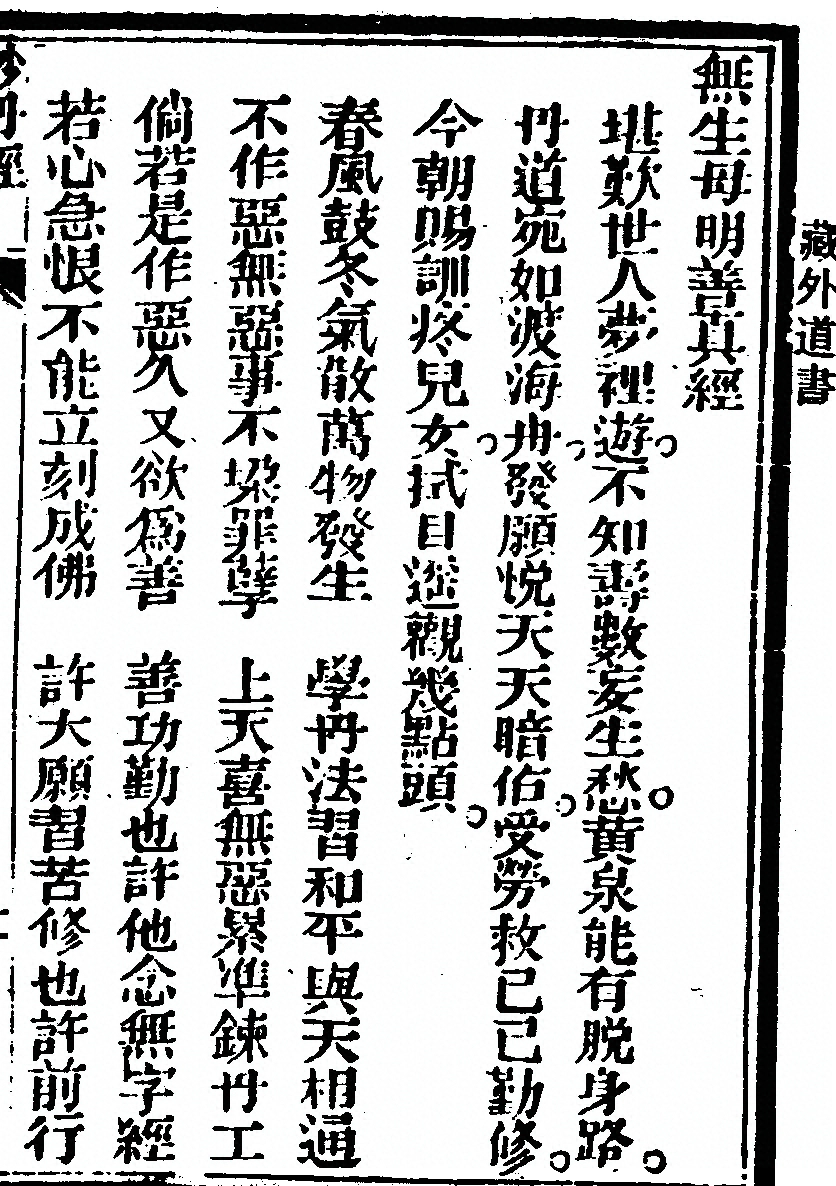 藏外道書
無生母明善真經
堪歎世人夢裡遊○不知壽數妄生愁○黃泉能有脫身路○
丹道宛如渡海舟○發願悅天天暗佑○受勞救己己勤修○
今朝賜訓疼兒女○拭目遥觀幾點頭○
春風鼓冬氣散萬物發生　學丹法習和平與天相通
不作惡無惡事不垛罪孽　上天喜無惡累準鍊丹工
倘若是作惡久又欲為善　善功勤也許他念無字經
若心急恨不能立刻成佛　許大願習苦修也許前行